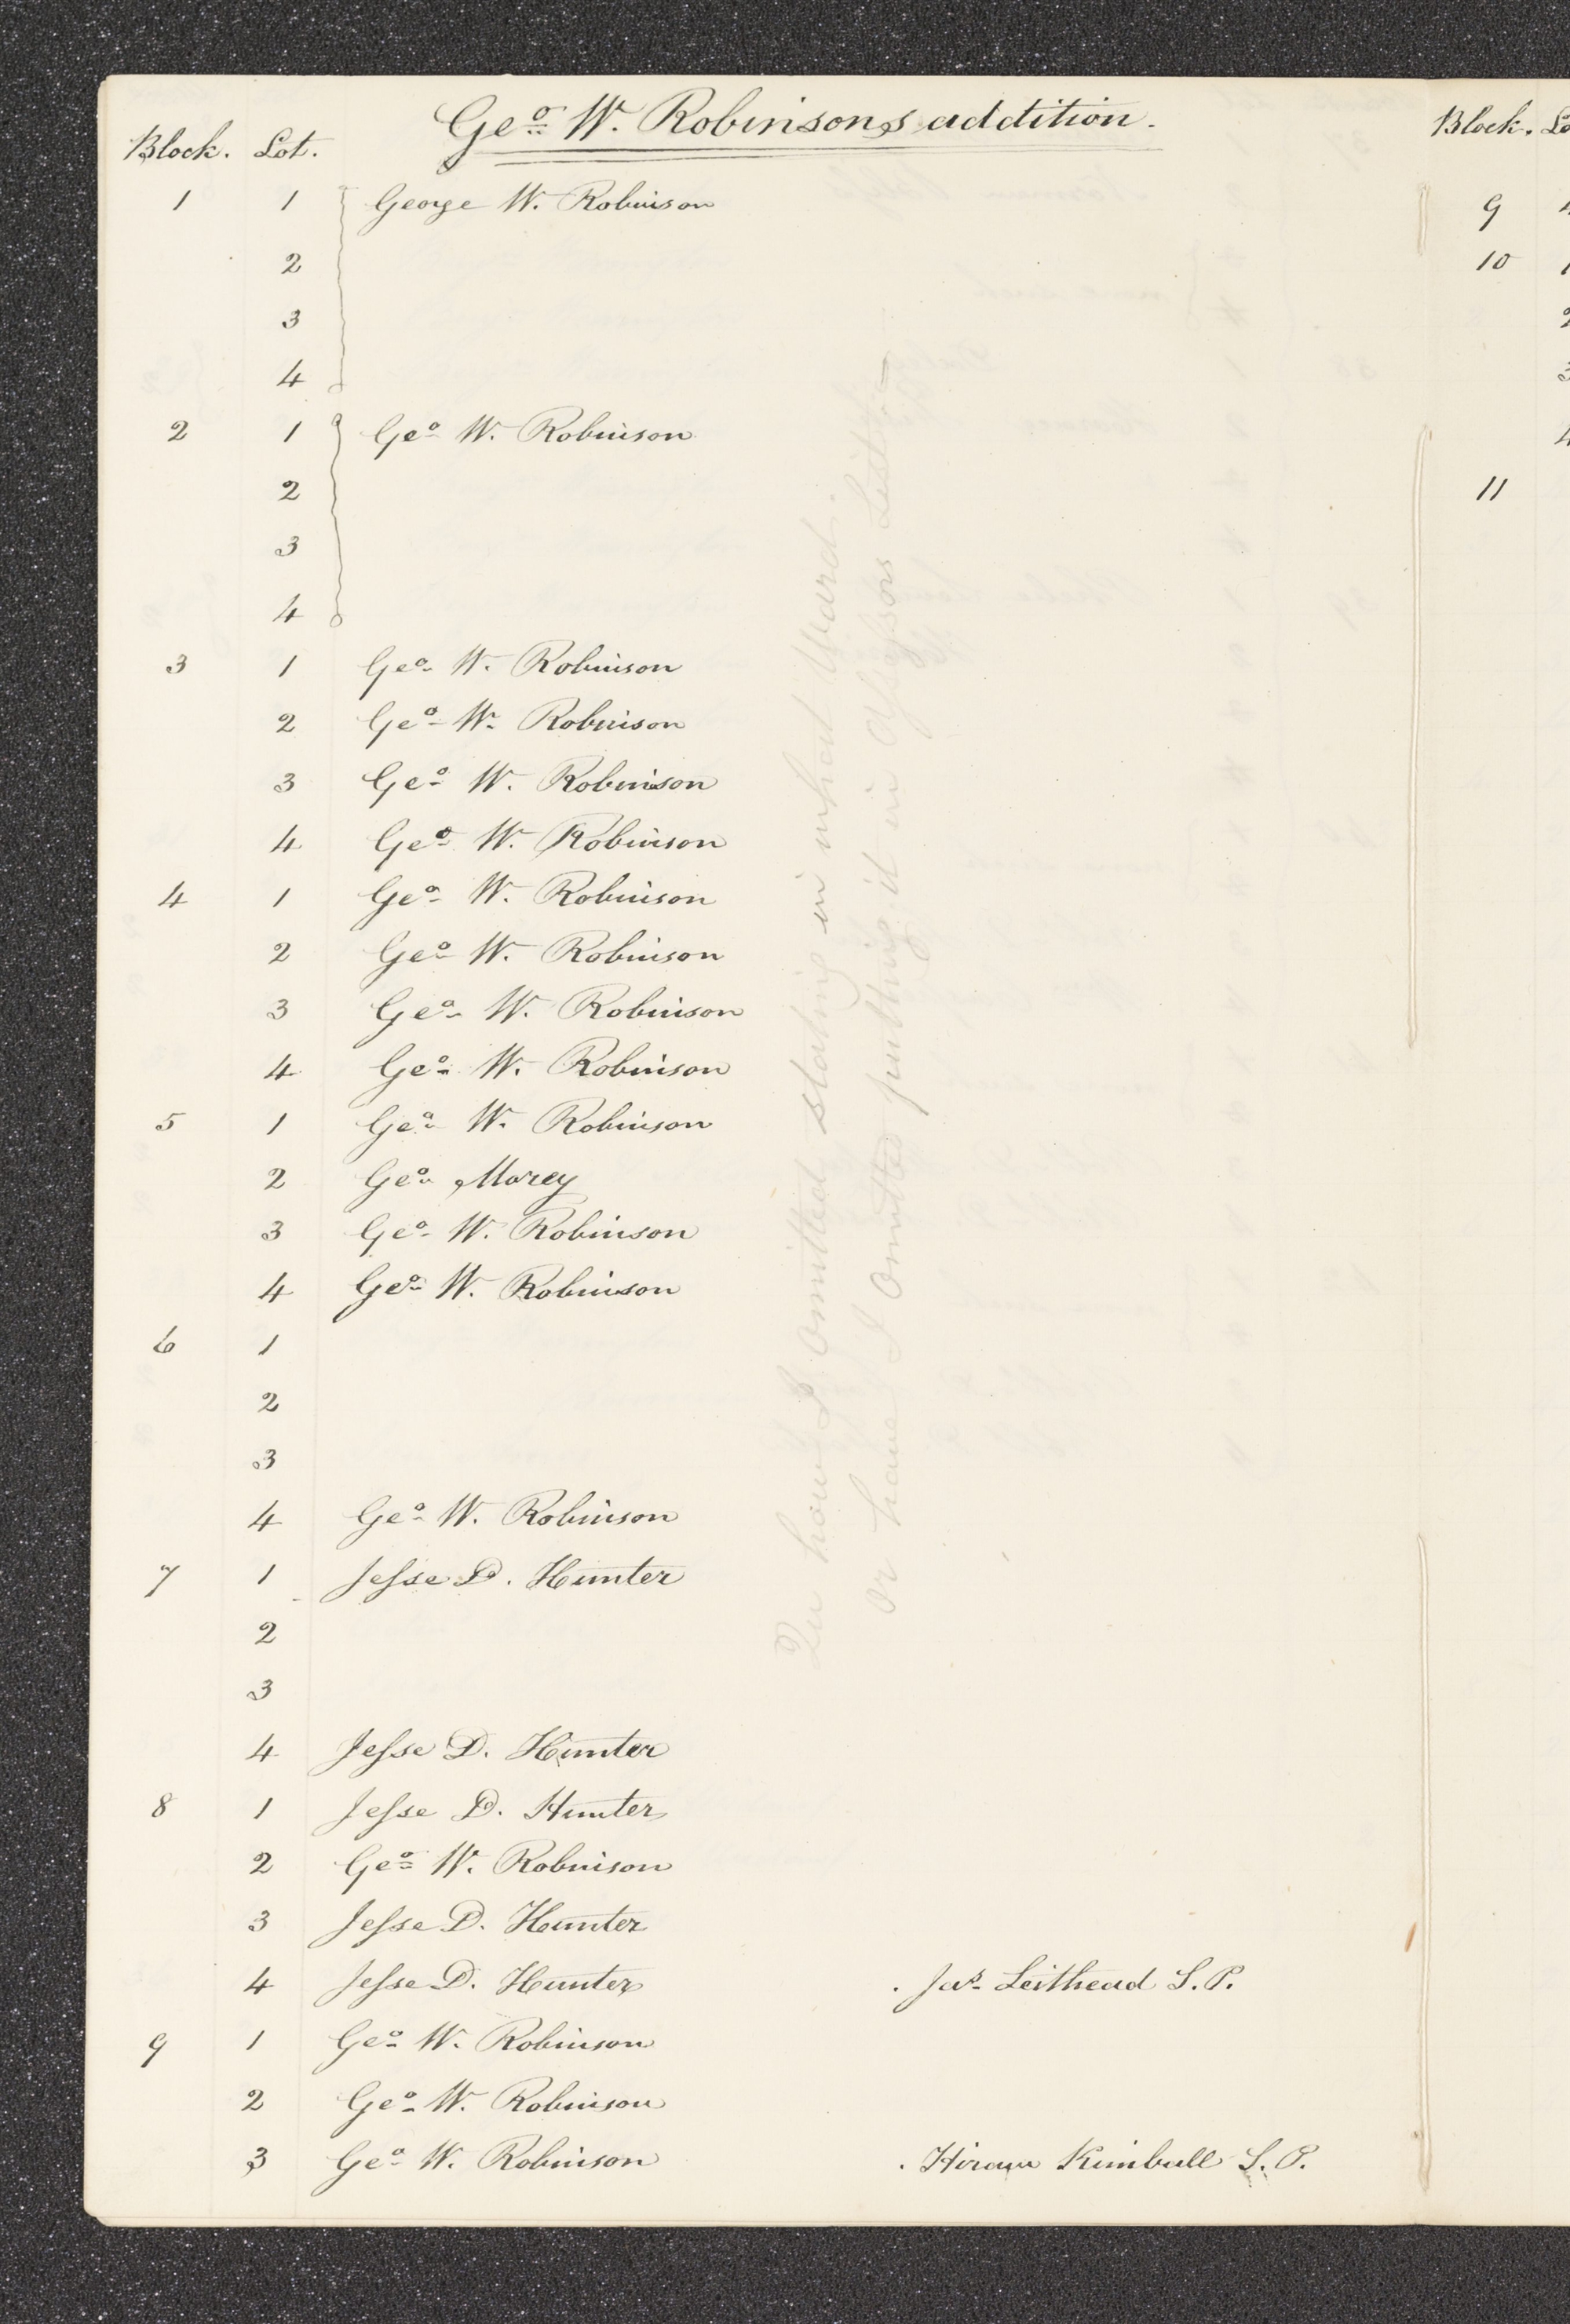 Geo W. Robinsons addition.
Block. Lot.
1 1 George W. Robinson
2
3
4
2 1 Geo W. Robinson
2
3
4
3 1 Geo W. Robinson
2 Geo W. Robinson
3 Geo W. Robinson
4 Geo W. Robinson
4 1 Geo W. Robinson
2 Geo W. Robinson
3 Geo W. Robinson
4 Geo W. Robinson
5 1 Geo W. Robinson
2 Geo Morey
3 Geo W. Robinson
4 Geo W. Robinson
6 1
2
3
4 Geo W. Robinson
7 1 Jesse D. Hunter
2
3
4 Jesse D. Hunter
8 1 Jesse D. Hunter
2 Geo W. Robinson
3 Jesse D. Hunter
4 Jesse D. Hunter . Jas Leithead S. P.
9 1 Geo W. Robinson
2 Geo W. Robinson
3 Geo W. Robinson . Hiram Kimball S. P.
I omitted stating in what Ward.
or have I omitted putting it in List
Block.
9
10
11